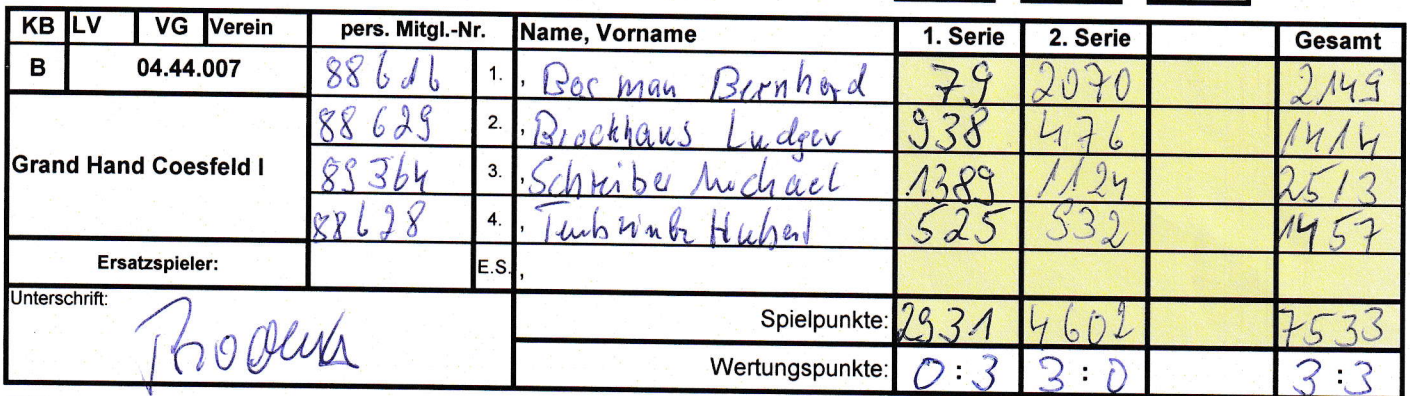 KB LV VG Verein pers. Mitgl.-Nr. Name, Vorname 1. Serie 2. Serie Gesamt
B 04.44.007 88616 1. , Bosman Bernhard 79 2070 2149
88629 2. , Brockhaus Ludger 938 476 1414
Grand Hand Coesfeld I 89364 3. , Schreiber Michael 1389 1124 2513
88628 4. , Hubert 525 932 1457
Ersatzspieler: E.S. ,
Unterschrift: Spielpunkte: 2931 4602 7533
Wertungspunkte: 0:3 3:0 3:3